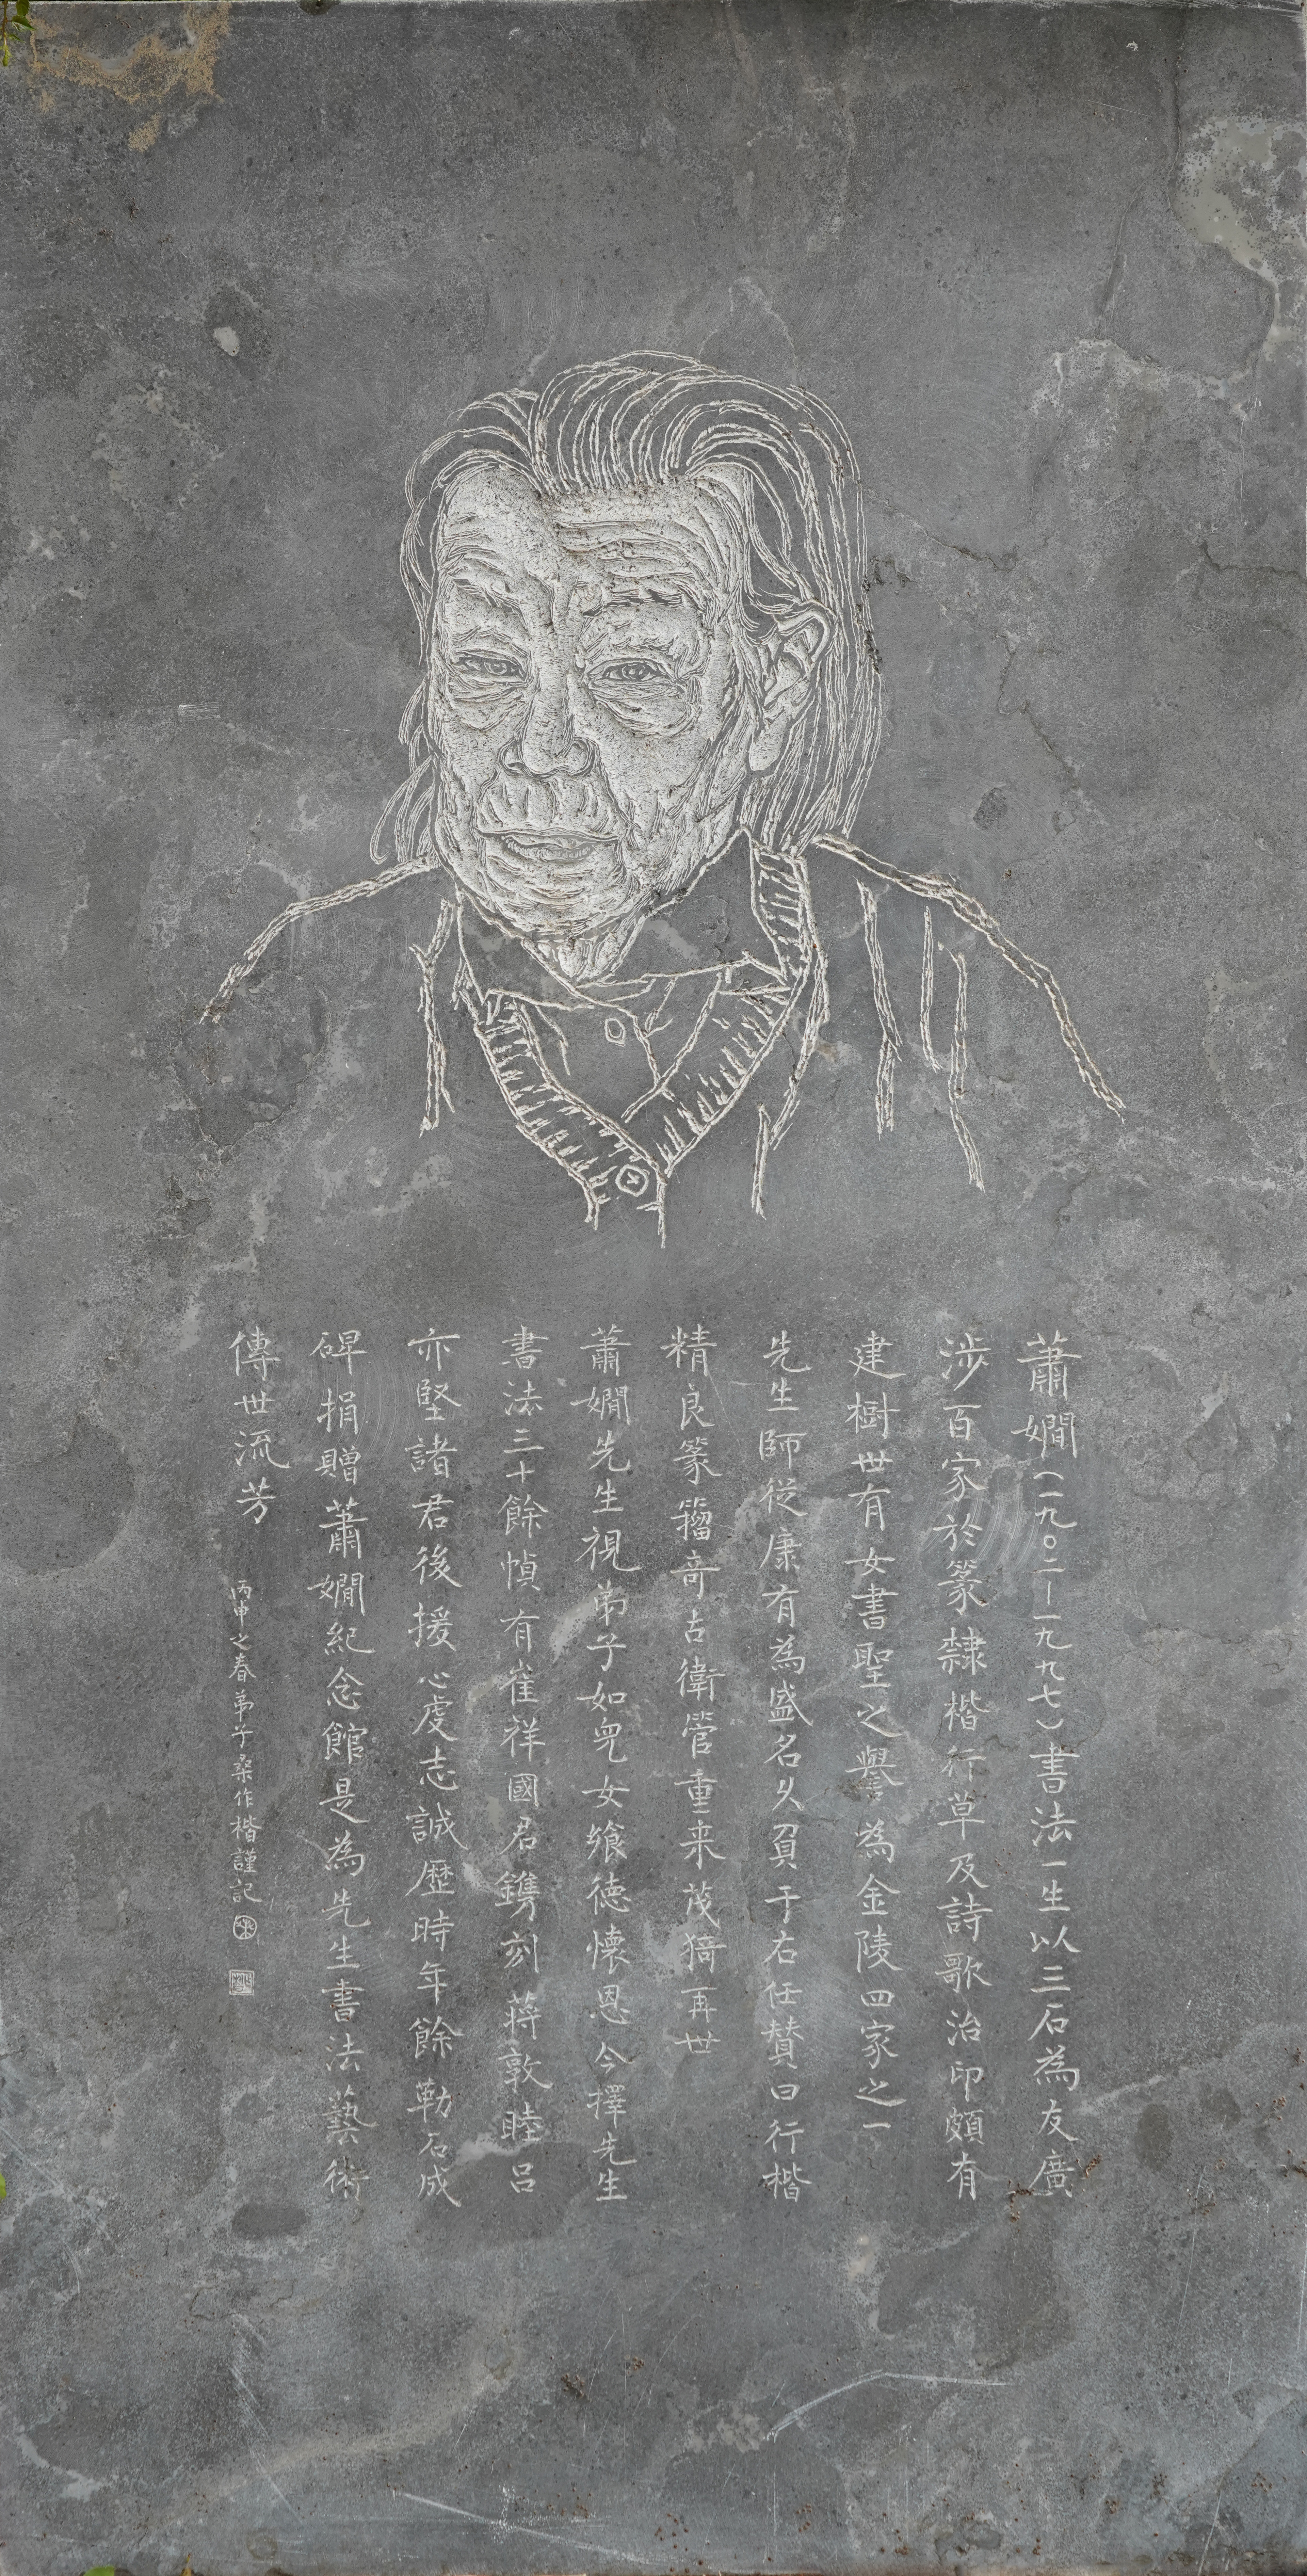 蕭嫻(一九〇二—一九九七)書法一生以三石為友廣
涉百家於篆隸楷行草及詩歌治印頗有
建樹世有女書聖之譽為金陵四家之一
先生師從康有為盛名久負于右任赞曰行楷
精良篆籀奇古衛管重来茂猗再世
蕭嫻先生視弟子如兒女飨德懷恩今擇先生
書法三十餘幀有崔祥國君鐫刻蔣敦睦呂
亦堅諸君後援心虔志誠歷時年餘勒石成
碑捐贈蕭嫻紀念館是為先生書法藝術
傳世流芳
丙申之春弟子桑作楷謹記